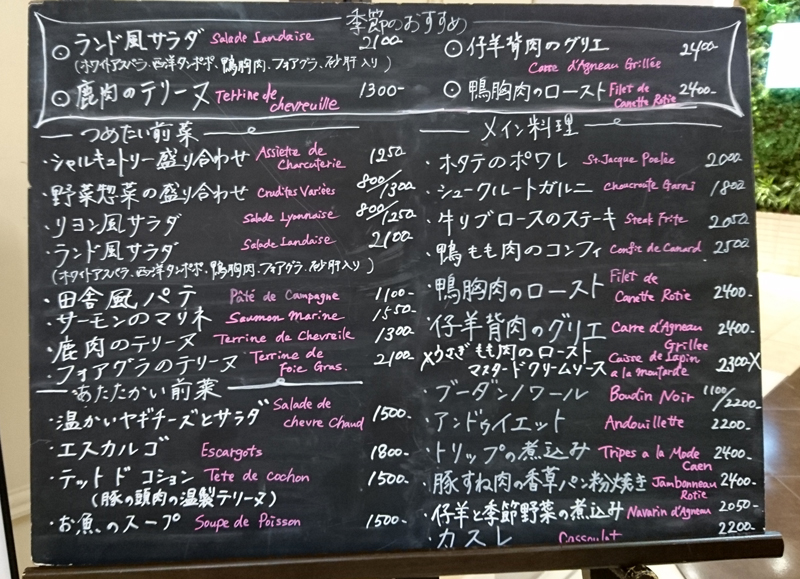 季節のおすすめ
⊙ランド風サラダ Salade Landaise 2100
(ホワイトアスパラ、西洋タンポポ、鴨胸肉、フォアグラ、砂肝入り)
⊙鹿肉のテリーヌ Terrine de chevreuille 1300-
⊙仔羊背肉のグリエ 2400-
Carre d'Agneau Grillée
⊙鴨胸肉のロースト Filet de Canette Rotie 2400-
つめたい前菜
・シャルキュトリー盛り合わせ Assiette de Charcuterie 1250-
・野菜惣菜の盛り合わせ Crudites Variées 800/1300
・リヨン風サラダ Salade Lyonnaise 800/1250
・ランド風サラダ Salade Landaise 2100
(ホワイトアスパラ、西洋タンポポ、鴨胸肉、フォアグラ、砂肝入り)
・田舎風パテ Pâté de Campagne 1100-
・サーモンのマリネ Saumon Marine 1550-
・鹿肉のテリーヌ Terrine de Chevreile 1300
・フォアグラのテリーヌ Terrine de Foie Gras. 2100
あたたかい前菜
・温かいヤギチーズとサラダ Salade de chevre Chaud 1500-
・エスカルゴ Escargots 1800-
・テット ド コション Tete de cochon 1500-
(豚の頭肉の温製テリーヌ)
・お魚のスープ Soupe de Poisson 1500-
メイン料理
・ホタテのポワレ St-Jacque Poelée 2000
・シュークルートガルニ Choucroute Garni 1800
・牛リブロースのステーキ Steak Frite 2050
・鴨もも肉のコンフィ Confit de Canard 2500
・鴨胸肉のロースト Filet de Canette Rotie 2400-
・仔羊背肉のグリエ Carre d'Agneau Grillee 2400-
×うさぎもも肉のロースト マスタードクリームソース Cuisse de Lapin a la moutarde 2300-×
・ブーダンノワール Boudin Noir 1100/2200-
・アンドゥイエット Andouillette 2200-
・トリップの煮込み Tripes a la Mode Caen 2400-
・豚すね肉の香草パン粉焼き Jambonneau Rotie 2400-
・仔羊と季節野菜の煮込み Navarin d'Agneau 2050-
・カスレ Cassoulet 2200-